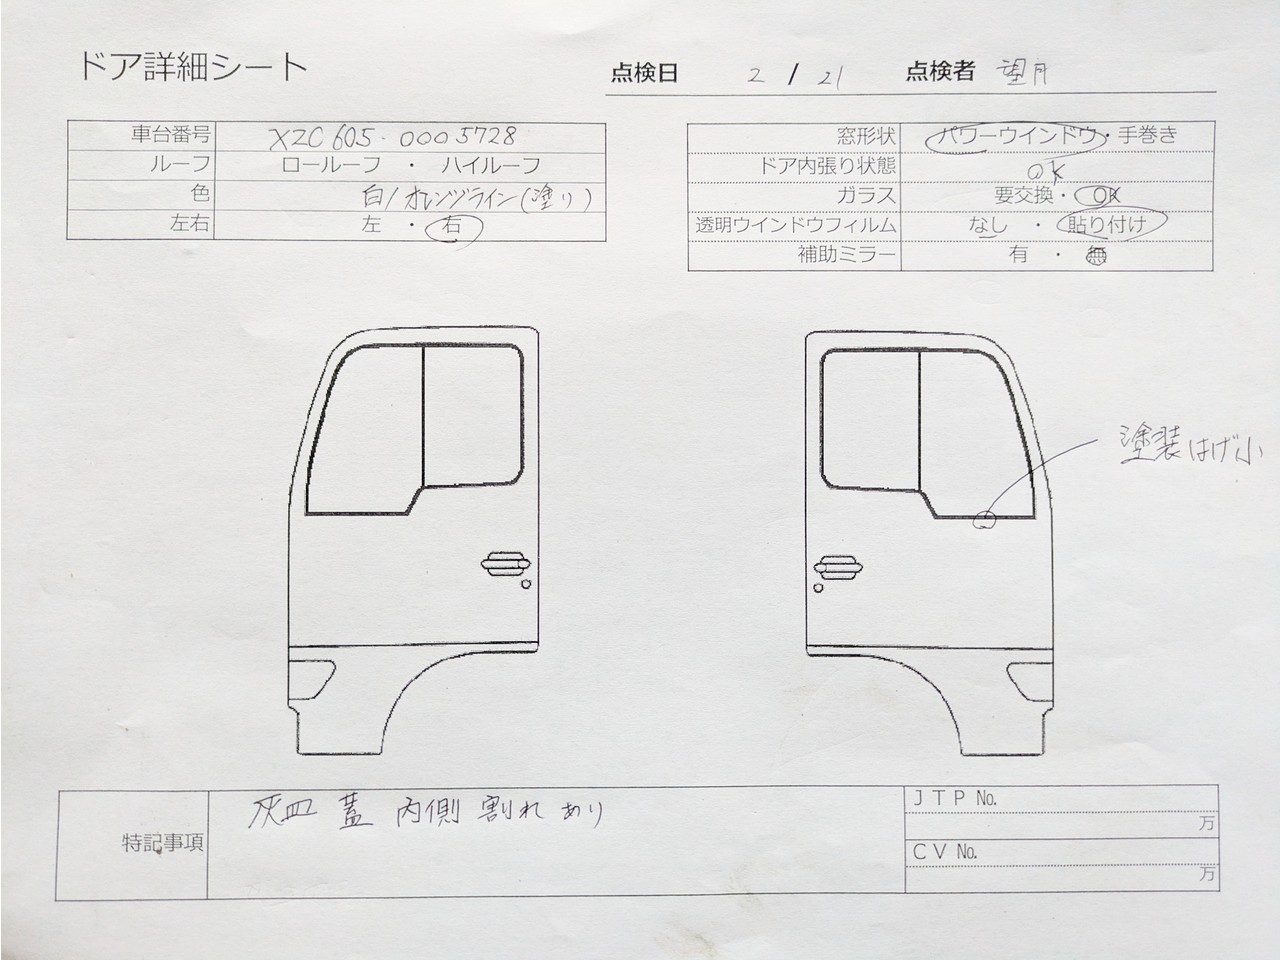 ドア詳細シート
点検日 2 / 21 点検者 望月
車台番号 XZC605-0005728
ルーフ ロールーフ ・ ハイルーフ
色 白/オレンジライン(塗り)
左右 左 ・ 右
窓形状 パワーウインドウ・手巻き
ドア内張り状態 OK
ガラス 要交換・OK
透明ウインドウフィルム なし ・ 貼り付け
補助ミラー 有 ・ 無
塗装はげ小
特記事項 灰皿 蓋 内側 割れあり
JTP No.
万
CV No.
万